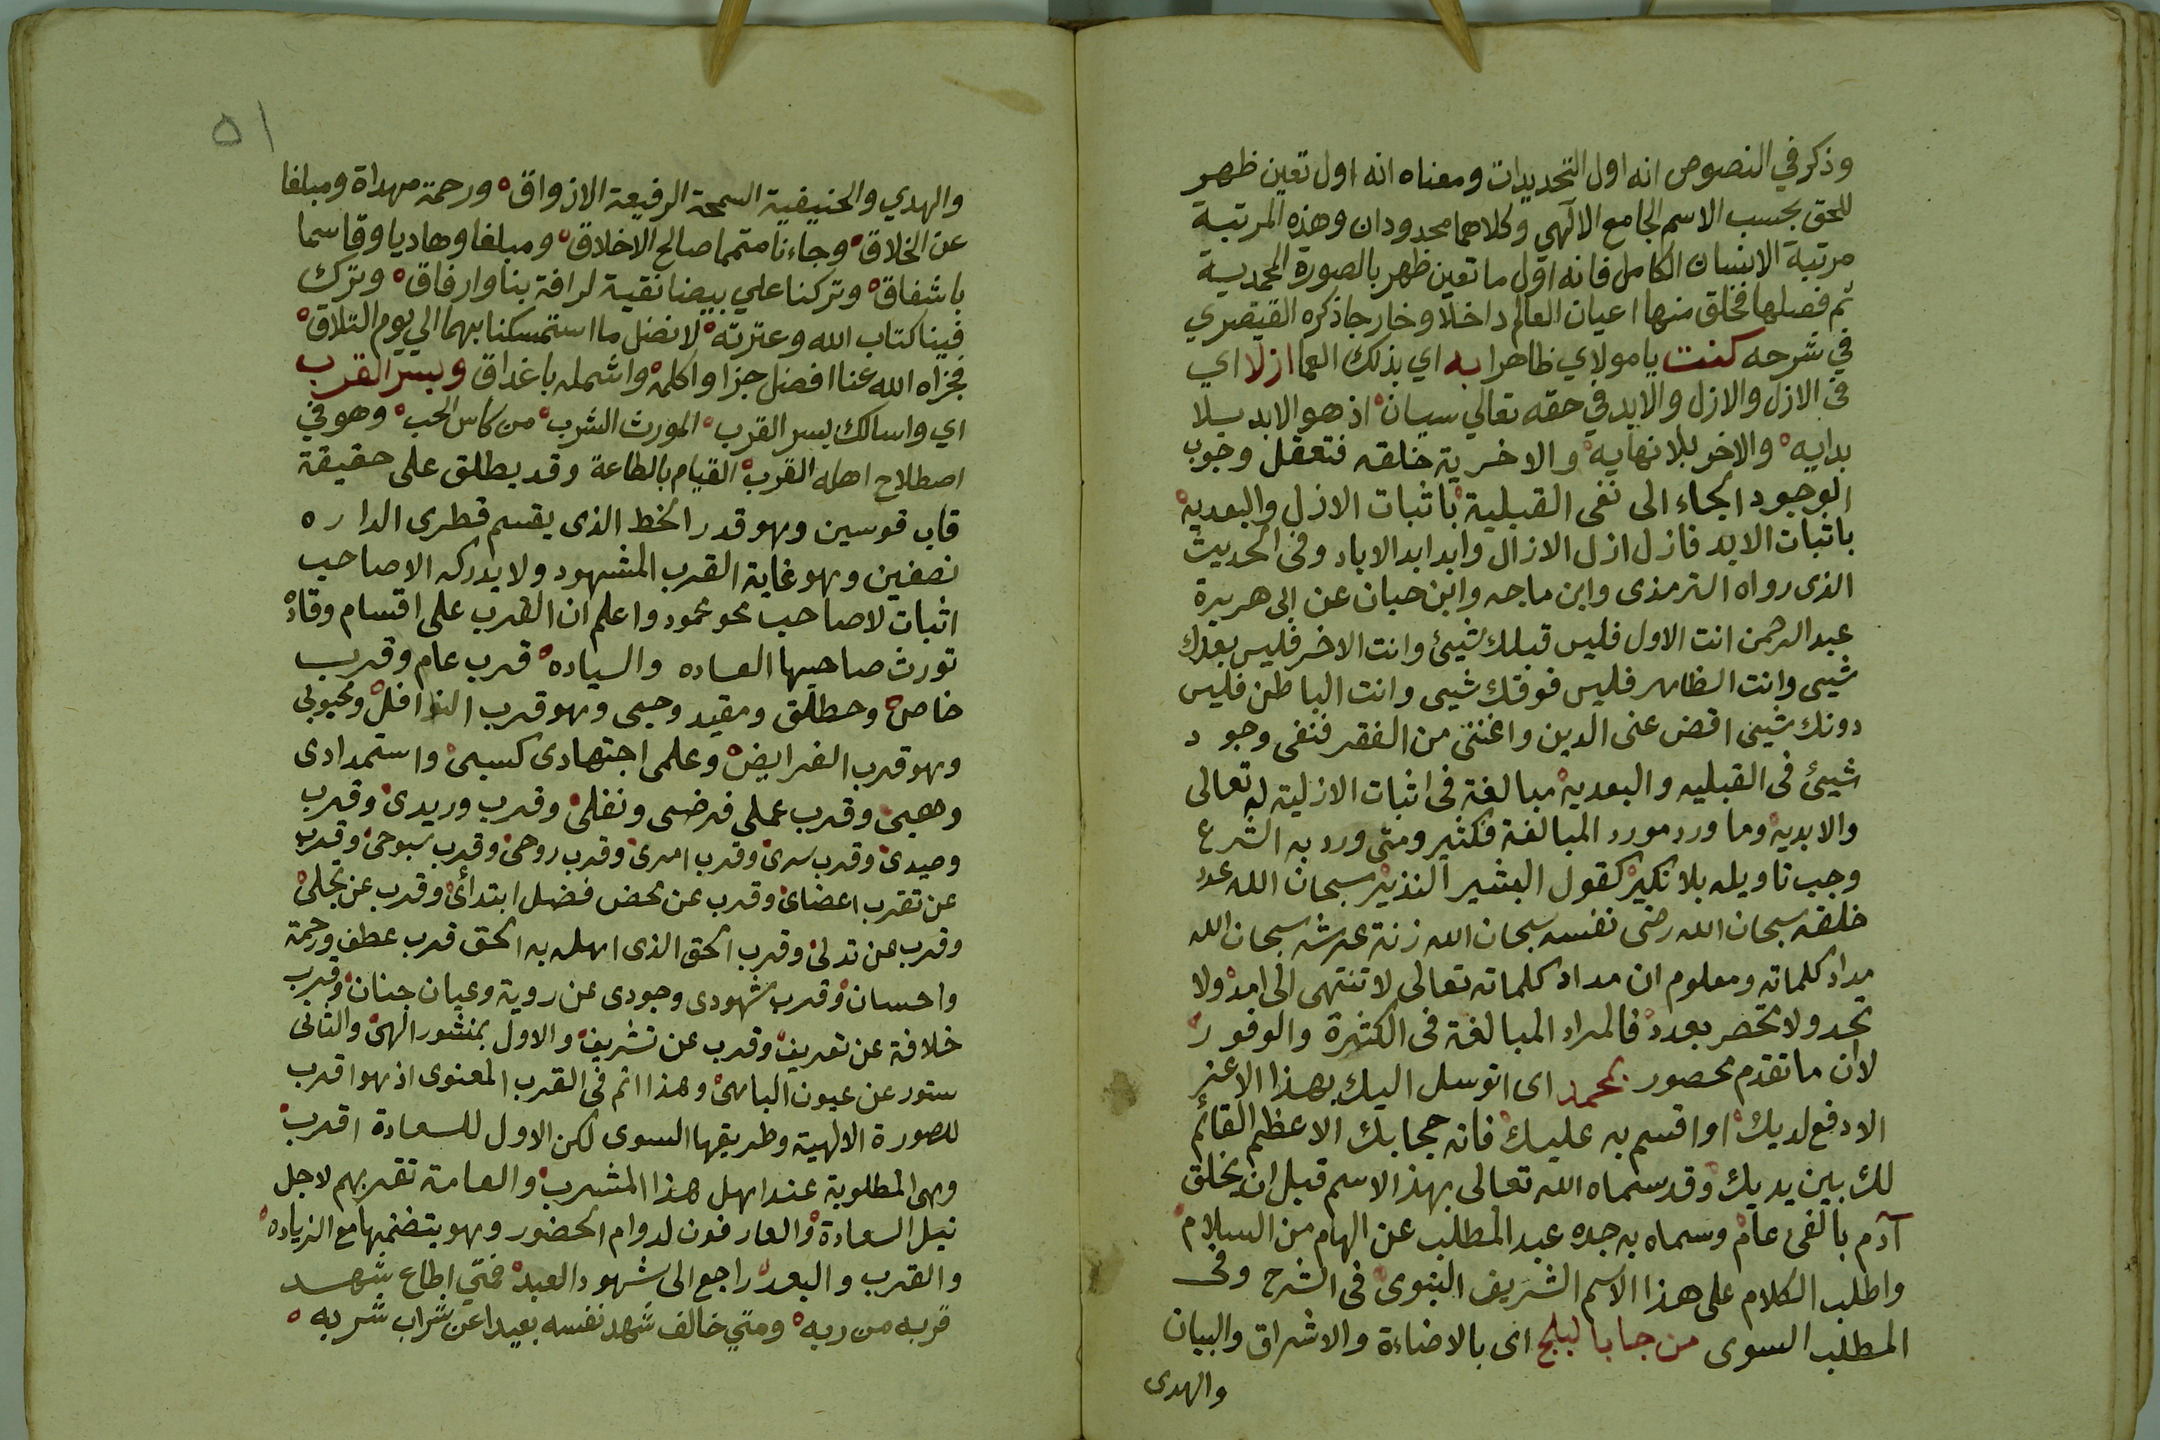 وذكر في النصوص انه اول التحديدات ومعناه انه اول تعين ظهر
للحق بحسب الاسم الجامع الالهي وكلاهما محدودان وهذه المرتبة
مرتبة الانسان الكامل فانه اول ما تعين ظهر بالصورة المحمدية
ثم فصلها فخلق منها اعيان العالم داخلا وخارجا ذكره القيصري
في شرحه كنت يا مولاي ظاهرا به اي بذلك العما ازلا اي
في الازل والازل والابد في حقه تعالي سيان اذ هو الابد بلا
بدايه والاخر بلا نهايه والاخرية خلقه فتعقل وجوب
الوجود الجاء الى نفى القبلية باثبات الازل والبعديه
باثبات الابد فازل ازل الازال وابد ابد الاباد وفى الحديث
الذى رواه الترمذى وابن ماجه وابن حبان عن ابى هريرة
عبد الرحمن انت الاول فليس قبلك شيئ وانت الاخر فليس بعدك
شيى وانت الظاهر فليس فوقك شيى وانت الباطن فليس
دونك شيئ اقض عنى الدين واغننى من الفقر فنفى وجود
شيئ فى القبليه والبعديه مبالغة فى اثبات الازلية له تعالى
والابديه وما ورد مورد المبالغة فكثير ومتى ورد به الشرع
وجب تاويله بلا نكير كقول البشير النذير سبحان الله عدد
خلقه سبحان الله رضى نفسه سبحان الله زنة عرشه سبحان الله
مداد كلماته ومعلوم ان مداد كلماته تعالى لا تنتهى الى امد ولا
تحد ولا تحصر بعدد فالمراد المبالغة فى الكثرة والوفور
لان ما تقدم محصور بمحمد اى اتوسل اليك بهذا الاعز
الارفع لديك او اقسم به عليك فانه حجابك الاعظم القائم
لك بين يديك وقد سماه الله تعالى بهذ الاسم قبل ان يخلق
آدم بالفى عام وسماه به جده عبد المطلب عن الهام من السلام
واطلب الكلام على هذا الاسم الشريف النبوى فى الشرح وفى
المطلب السوى من جا بالبلج اى بالاضاءة والاشراق والبيان
والهدى
٥١
والهدي والحنيفية السمحة الرفيعة الاذواق ورحمة مهداة ومبلغا
عن الخلاق وجاءنا متمما صالح الاخلاق ومبلغا وهاديا وقاسما
باشفاق وتركنا علي بيضا نقية لرافة بنا وارفاق وترك
فينا كتاب الله وعترته لا نضل ما استمسكنا بهما الي يوم التلاق
فجزاه الله عنا افضل جزا واكمله واشمله باغداق وبسر القرب
اي واسالك بسر القرب المورث الشرب من كاس الحب وهو في
اصطلاح اهله القرب القيام بالطاعة وقد يطلق على حقيقة
قاب قوسين وهو قدر الخط الذى يقسم قطرى الداره
نصفين وهو غاية القرب المشهود ولا يدركه الا صاحب
اثبات لا صاحب محو محمود واعلم ان القرب على اقسام وقاده
تورث صاحبها السعاده والسياده قرب عام وقرب
خاص ومطلق ومقيد وحبى وهو قرب النوافل ومحبوبى
وهو قرب الفرايض وعلمى اجتهادى كسبى واستمدادى
وهبى وقرب عملى فرضى ونفلى وقرب وريدى وقرب
وصيدى وقرب سرى وقرب امرى وقرب روحى وقرب سبوحى وقرب
عن تقرب اعضاى وقرب عن محض فضل ابتدائى وقرب عن تجلى
وقرب عن تدلى وقرب الحق الذى اهله به الحق قرب عطف ورحمة
واحسان وقرب شهودى وجودى عن روية وعيان جنان وقرب
خلافة عن تعريف وقرب عن تشريف والاول بمنشور الهى والثانى
ستور عن عيون الباهى وهذا اتم فى القرب المعنوى اذ هو اقرب
للصورة الالهية وطريقها السوى لكن الاول للسعادة اقرب
وهى المطلوبة عند اهل هذا المشرب والعامة تقربهم لاجل
نيل السعادة والعارفون لدوام الحضور وهو يتضمنها مع الزياده
والقرب والبعد راجع الى شهود العبد فمتي اطاع شهد
قربه من ربه ومتي خالف شهد نفسه بعيدا عن شراب شربه